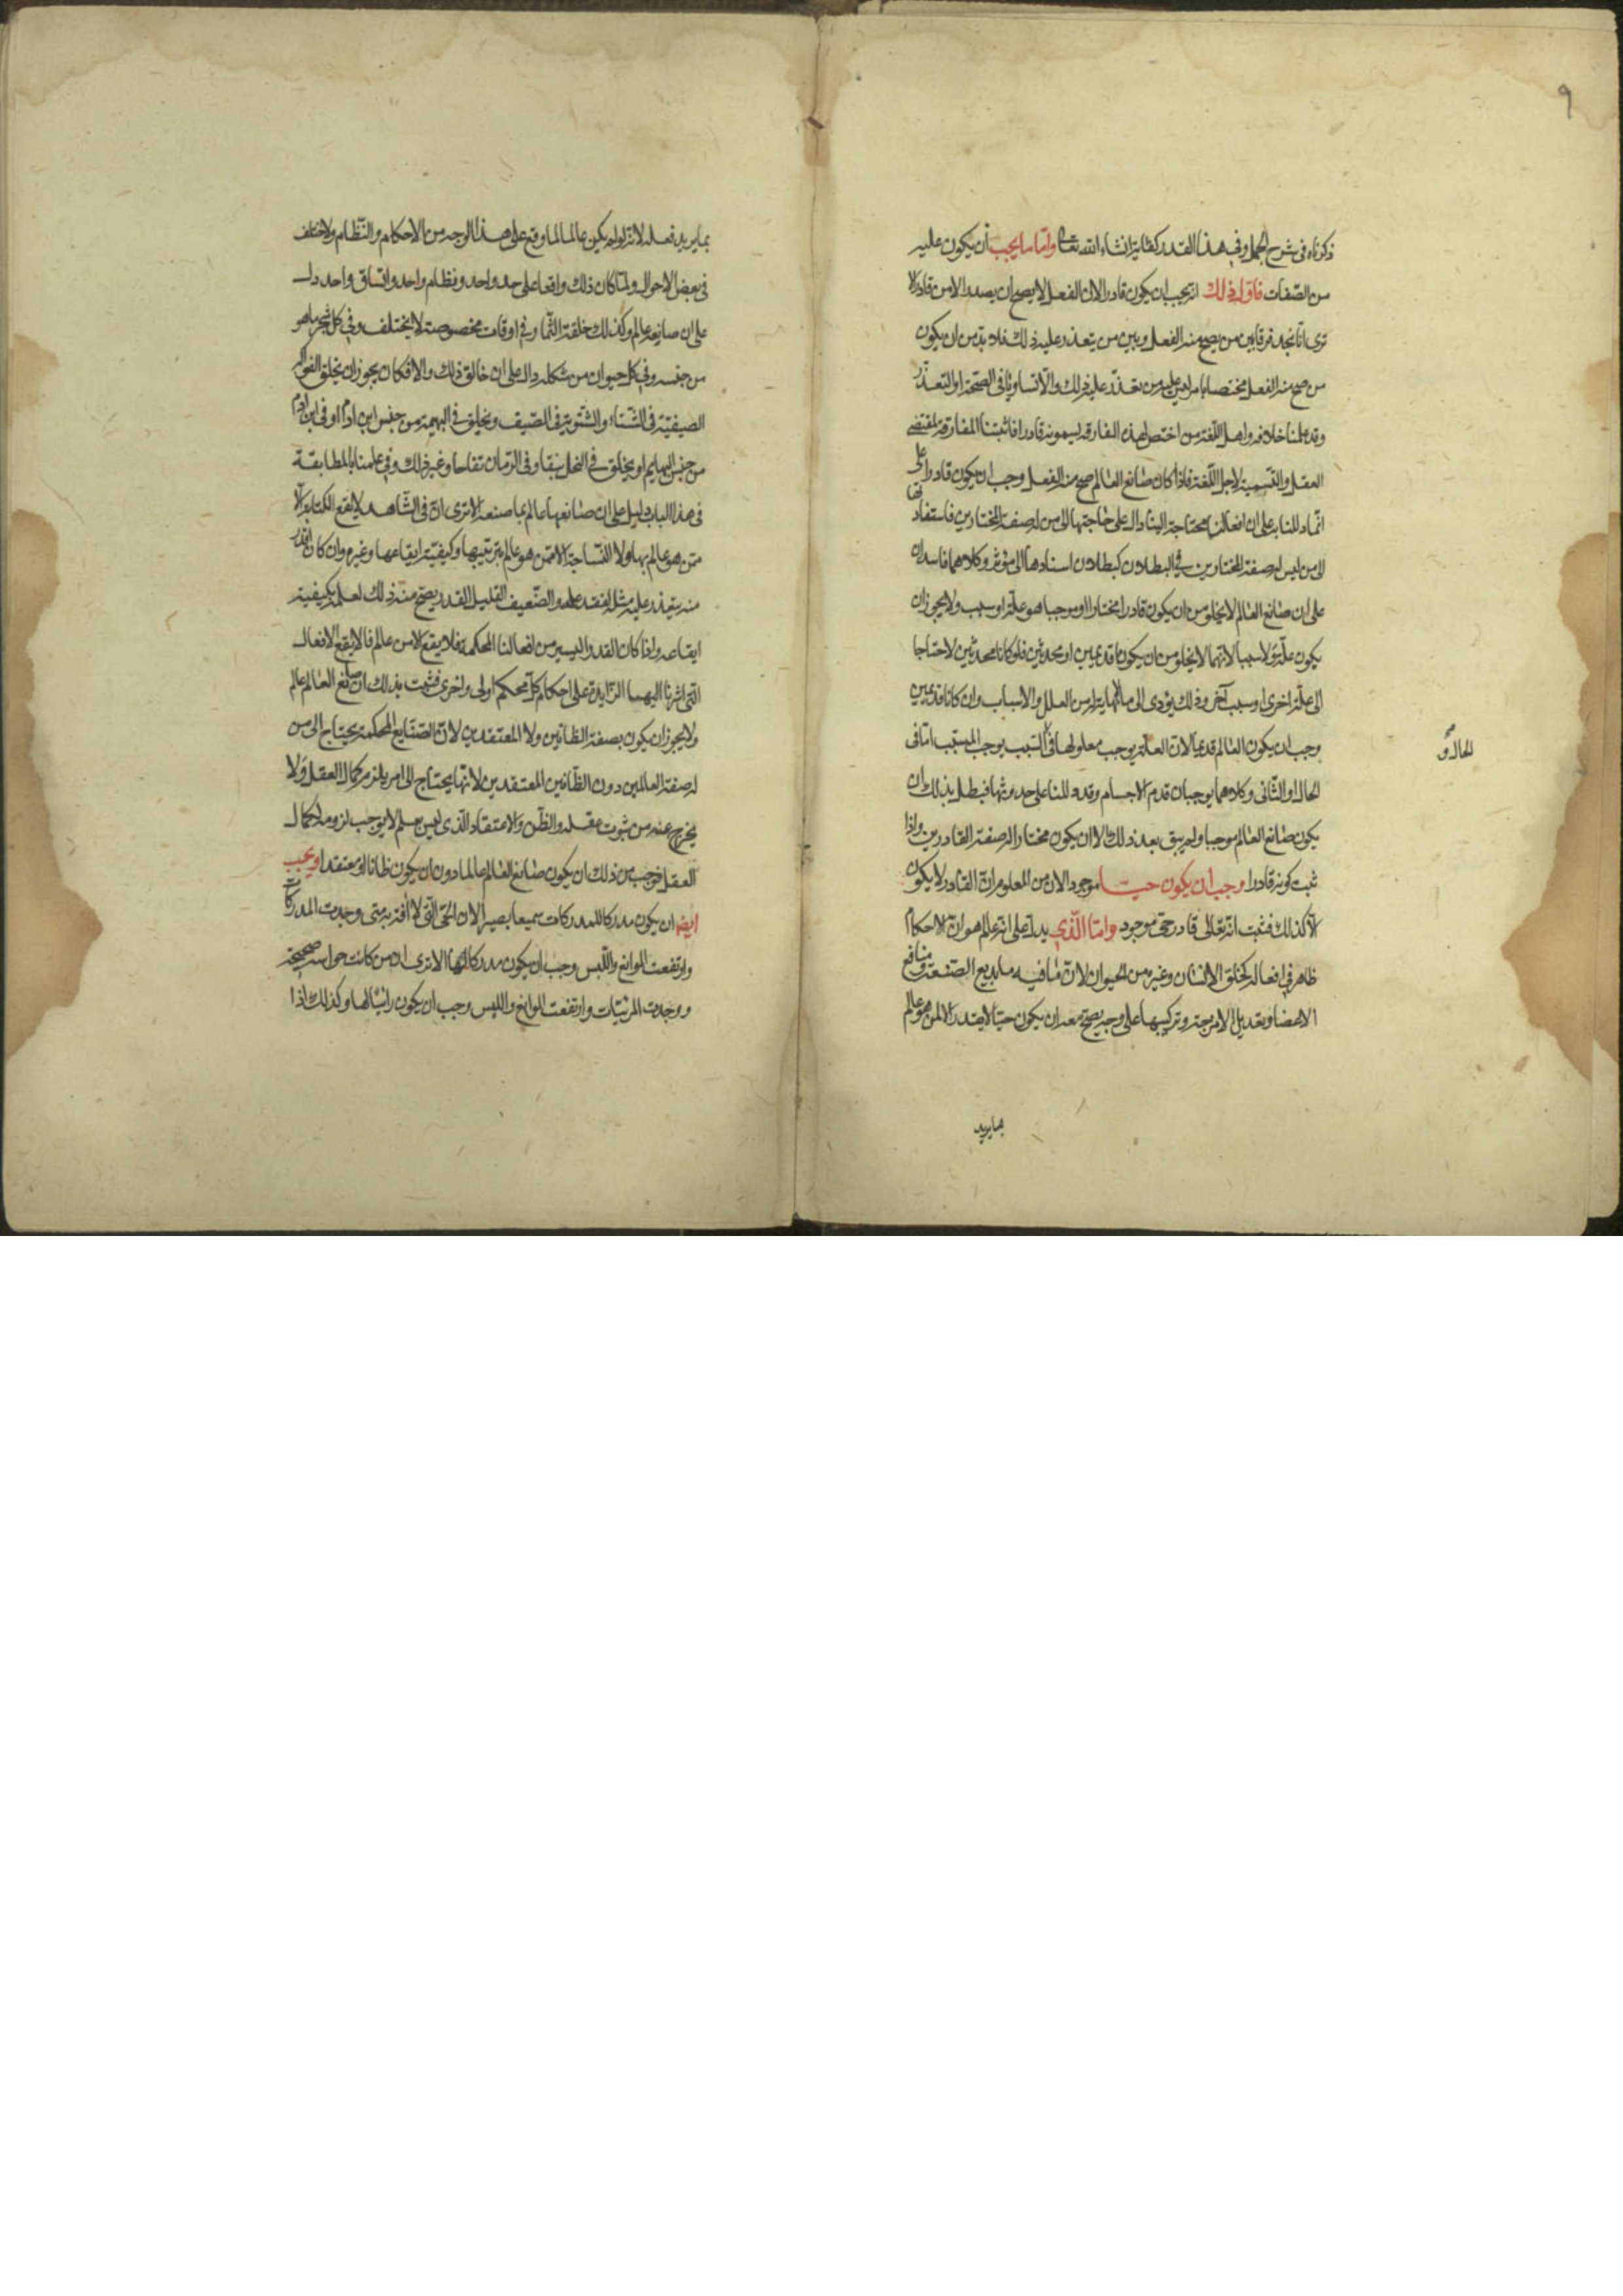 ٩
ذكرناه فى شرح الجمل وفى هذا القدر كفاية انشاء الله تعالى واما ما يجب أن يكون عليه
من الصّفات فاوّل ذلك انه يجب ان يكون قادرا لان الفعل لا يصح ان يصدر الا من قادر الا
ترى انا نجد فرقا بين من يصح منه الفعل وبين من يتعذر عليه ذلك فلا بدّ من ان يكون
من صح منه الفعل مختصا بامر ليس عليه من تعذّر عليه ذلك والّا تساويا فى الصّحة او التعذّر
وقد علمنا خلافه واهل اللّغة من اختص بهذه المفارقة يسمونه قادرا فاثبتنا المفارقة بمقتضى
العقل والتّسمية لاجل اللّغة فاذا كان صانع العالم صح منه الفعل وجب ان يكون قادرا على
انّما دللنا به على ان افعالنا محتاجة الينا دال على حاجتها الى من له صفة المختارين فاستنادها
الى من ليس له صفة المختارين فى البطلان كبطلان اسنادها الى مؤثر وكلاهما فاسدان
على ان صانع العالم لا يخلو من ان يكون قادرا مختارا او موجبا هو علّة او سبب ولا يجوز ان
يكون علّة ولا سببا لانهما لا يخلو من ان يكونا قديمين او محدثين فلو كانا محدثين لاحتاجا
الى علّة اخرى او سبب آخر وذلك يؤدى الى ما لا نهاية له من العلل والاسباب وان كانا قديمين
وجب ان يكون العالم قديما لان العلّة يوجب معلولها فى السّبب يوجب المسبّب امّا فى
الحال و
الحال او الثّانى وكلاهما يوجبان قدم الاجسام وقد دللنا على حدوثها فبطل بذلك ان
يكون صانع العالم موجبا ولم يبق بعد ذلك الا ان يكون مختارا له صفة القادرين واذا
ثبت كونه قادرا وجب ان يكون حيّا موجودا لان من المعلوم انّ القادر لا يكون
الّا كذلك فثبت انه تعالى قادر حى موجود وامّا الّذى يدل على انه عالم هو انّ الاحكام
ظاهر فى افعاله كخلق الانسان وغيره من الحيوان لانّ ما فيه من بديع الصّنعة ومنافع
الاعضا وتعديل الامزجة وتركيبها على وجه يصح معه ان يكون حيّا لا يقدر الا من هو عالم
بما يريد
بما يريد فعله لانه لو لم يكن عالما لما وقع على هذا الوجه من الاحكام والنّظام ولاختلف
فى بعض الاحوال ولمّا كان ذلك واقعا على حد واحد ونظام واحد واتّساق واحد دل
على ان صانعه عالم وكذلك خلقة الثّمار فى اوقات مخصوصة لا يختلف وفى كل شجر ما هو
من جنسه وفى كل حيوان من شكله دال على ان خالق ذلك والا فكان يجوز ان يخلق الفواكه
الصيفيّة فى الشّتاء والشّتوية فى الصّيف ويخلق فى البهيمة من جنس ابن ادم او فى ابن ادم
من جنس البهايم او يخلق فى النخل نبقا وفى الرّمان تفاحا وغير ذلك وفى علمنا بالمطابقة
فى هذا الباب دليل على ان صانعها عالم بما صنعه الا ترى انّ فى الشّاهد لا يقع الكتابة الّا
ممّن هو عالم بها ولا النّساجة الا ممّن هو عالم بترتيبها وكيفيّة ايقاعها وغيره وان كان اقدر
منه يتعذر عليه مثله لفقد علمه والضّعيف القليل القدر يصحّ منه ذلك لعلمه بكيفية
ايقاعه واذا كان القدر اليسير من افعالنا المحكمة فلا يقع الا من عالم فالا يقع الافعال
التى اشرنا اليها الزّايدة على احكام كل محكم اولى واحرى فثبت بذلك ان صانع العالم عالم
ولا يجوز ان يكون بصفة الظّانين ولا المعتقدين لانّ الصّنايع المحكمة يحتاج الى من
له صفة العالمين دون الظّانين المعتقدين لانّها يحتاج الى امر يلزم كمال العقل ولا
يخرج عنه من ثبوت عقله والظّن والاعتقاد الّذى ليس بعلم لا يوجب لزومه لكمال
العقل فوجب من ذلك ان يكون صانع العالم عالما دون ان يكون ظانا او معتقدا ويجب
ايضا ان يكون مدركا للمدركات سميعا بصيرا لان الحىّ الّذى لا افة به متى وجدت المدركات
وارتفعت الموانع واللّبس وجب ان يكون مدركا لها الا ترى ان من كانت حواسه صحيحة
ووجدت المرئيّات وارتفعت الموانع واللبس وجب ان يكون رائيا لها وكذلك اذا